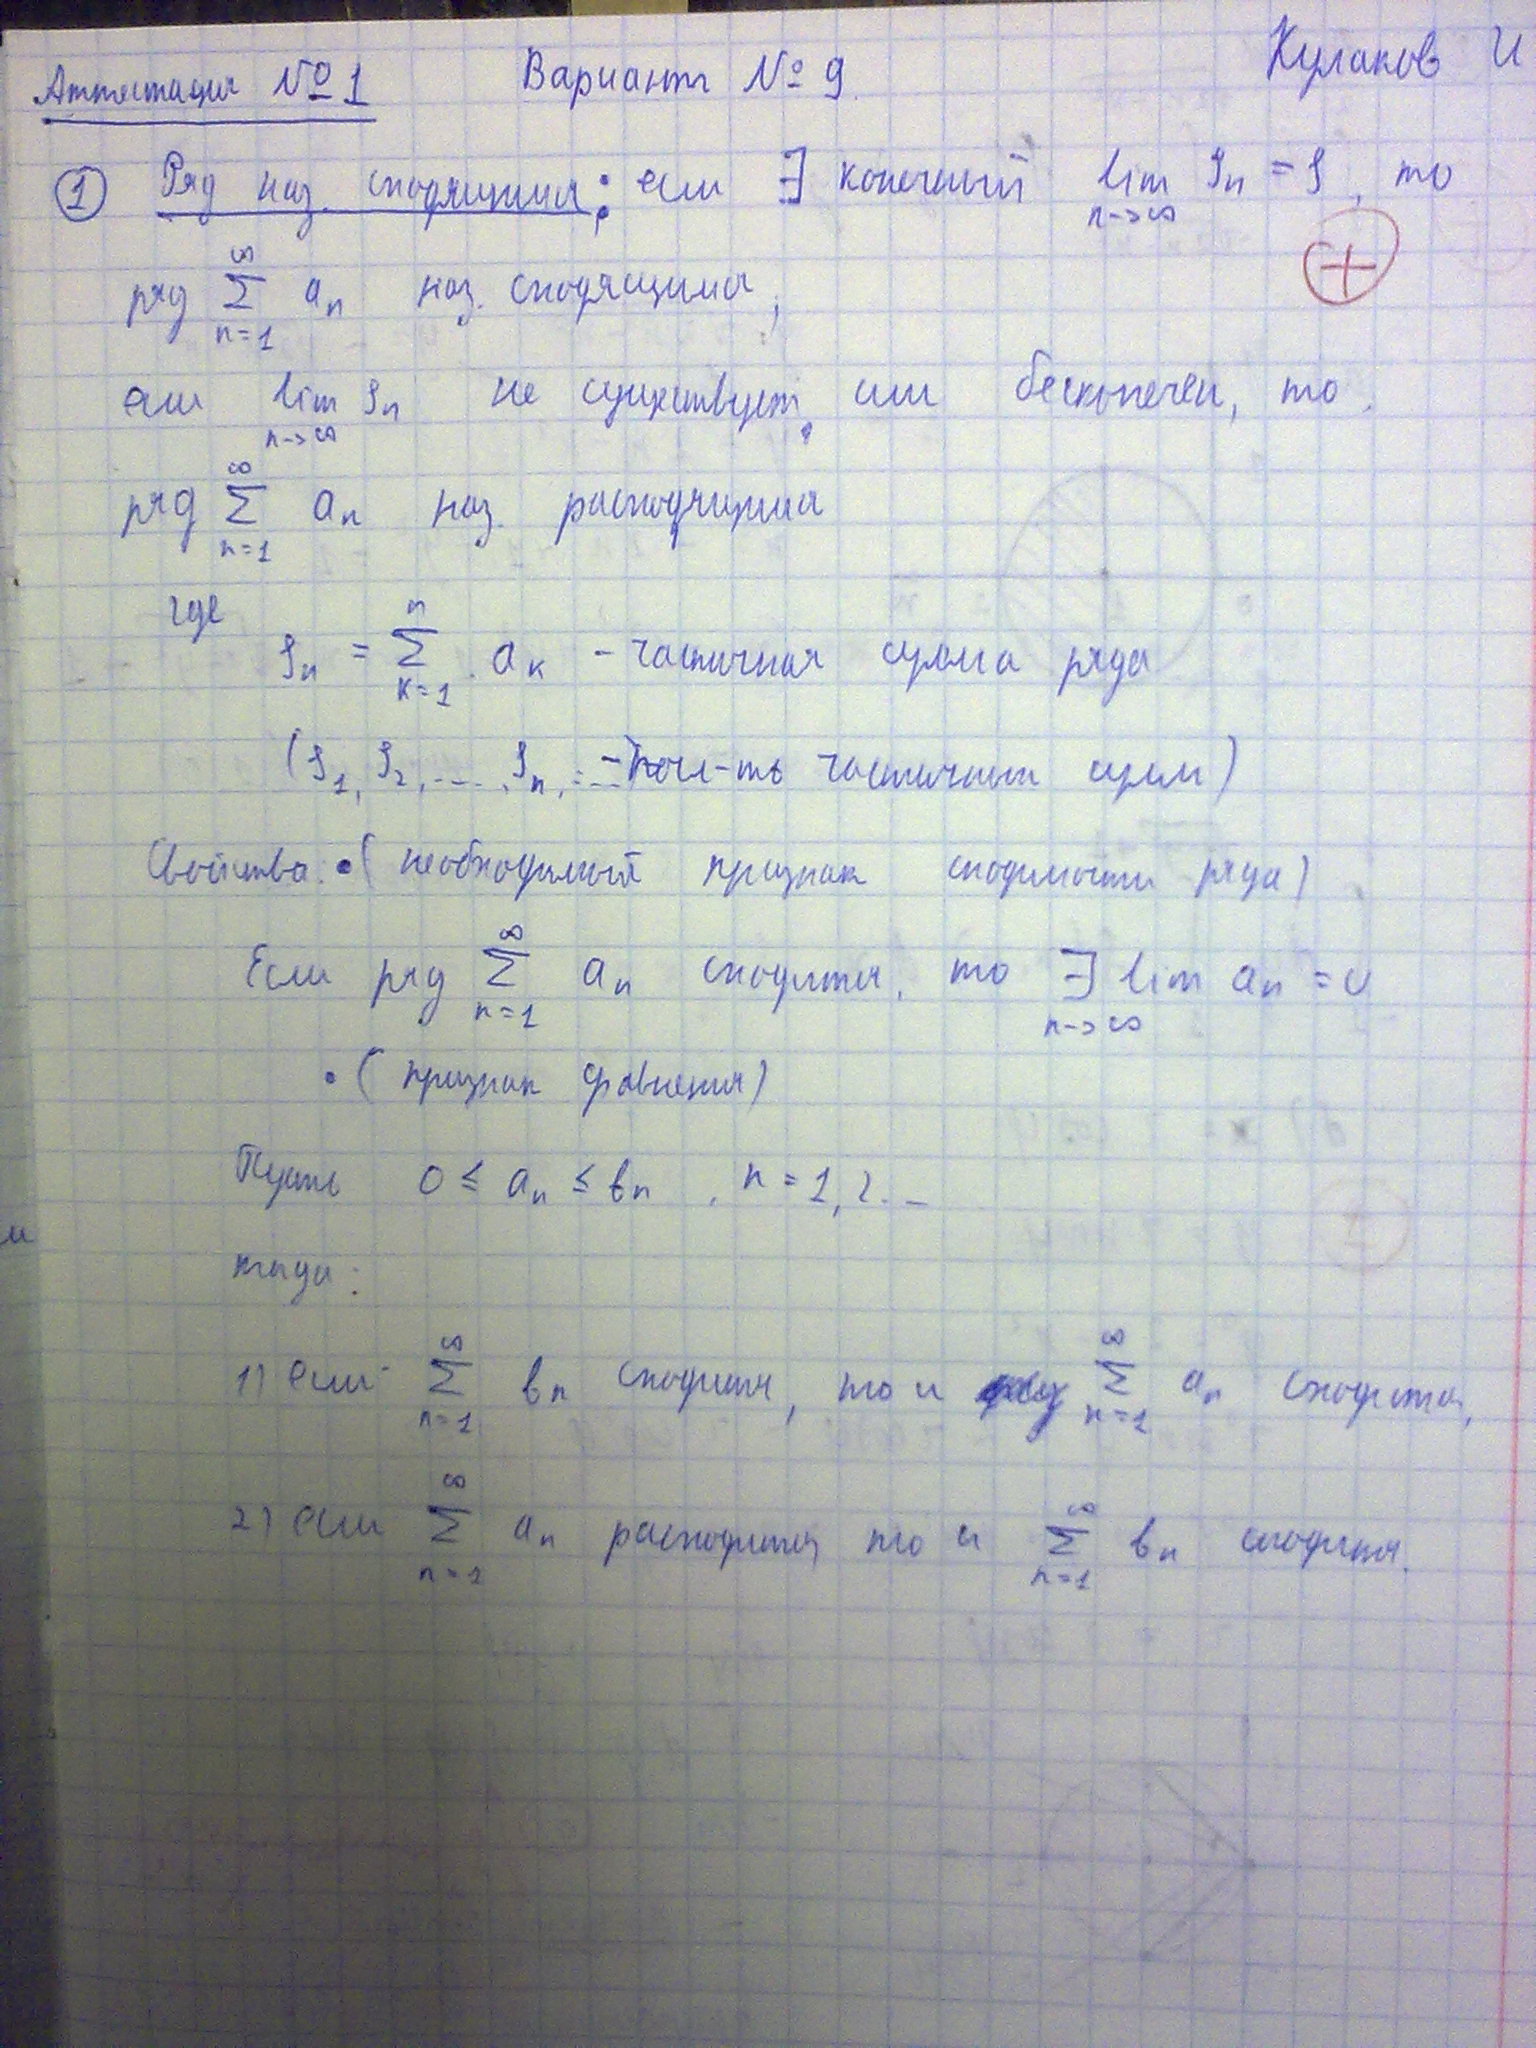 Аттестация №1 Вариант №9. Кулаков И
① Ряд наз. сходящимся: если ∃ конечный lim Sn = S, то
n->∞
+
ряд ∑ an наз. сходящимся,
∞
n=1
если lim Sn не существует, или бесконечен, то
n->∞
ряд ∑ an наз. расходящимся
∞
n=1
где
Sn = ∑ aк - частичная сумма ряда
n
к=1
(S1, S2, ..., Sn, ... - посл-ть частичных сумм)
Свойства: • (необходимый признак сходимости ряда)
Если ряд ∑ an сходится, то ∃ lim an = 0
∞
n=1
n->∞
• (признак сравнения)
Пусть 0 ≤ an ≤ вn, n = 1, 2...
тогда:
1) если ∑ вn сходится, то и ∑ an сходится,
∞
n=1
∞
n=1
2) если ∑ an расходится, то и ∑ вn сходится.
∞
n=1
∞
n=1